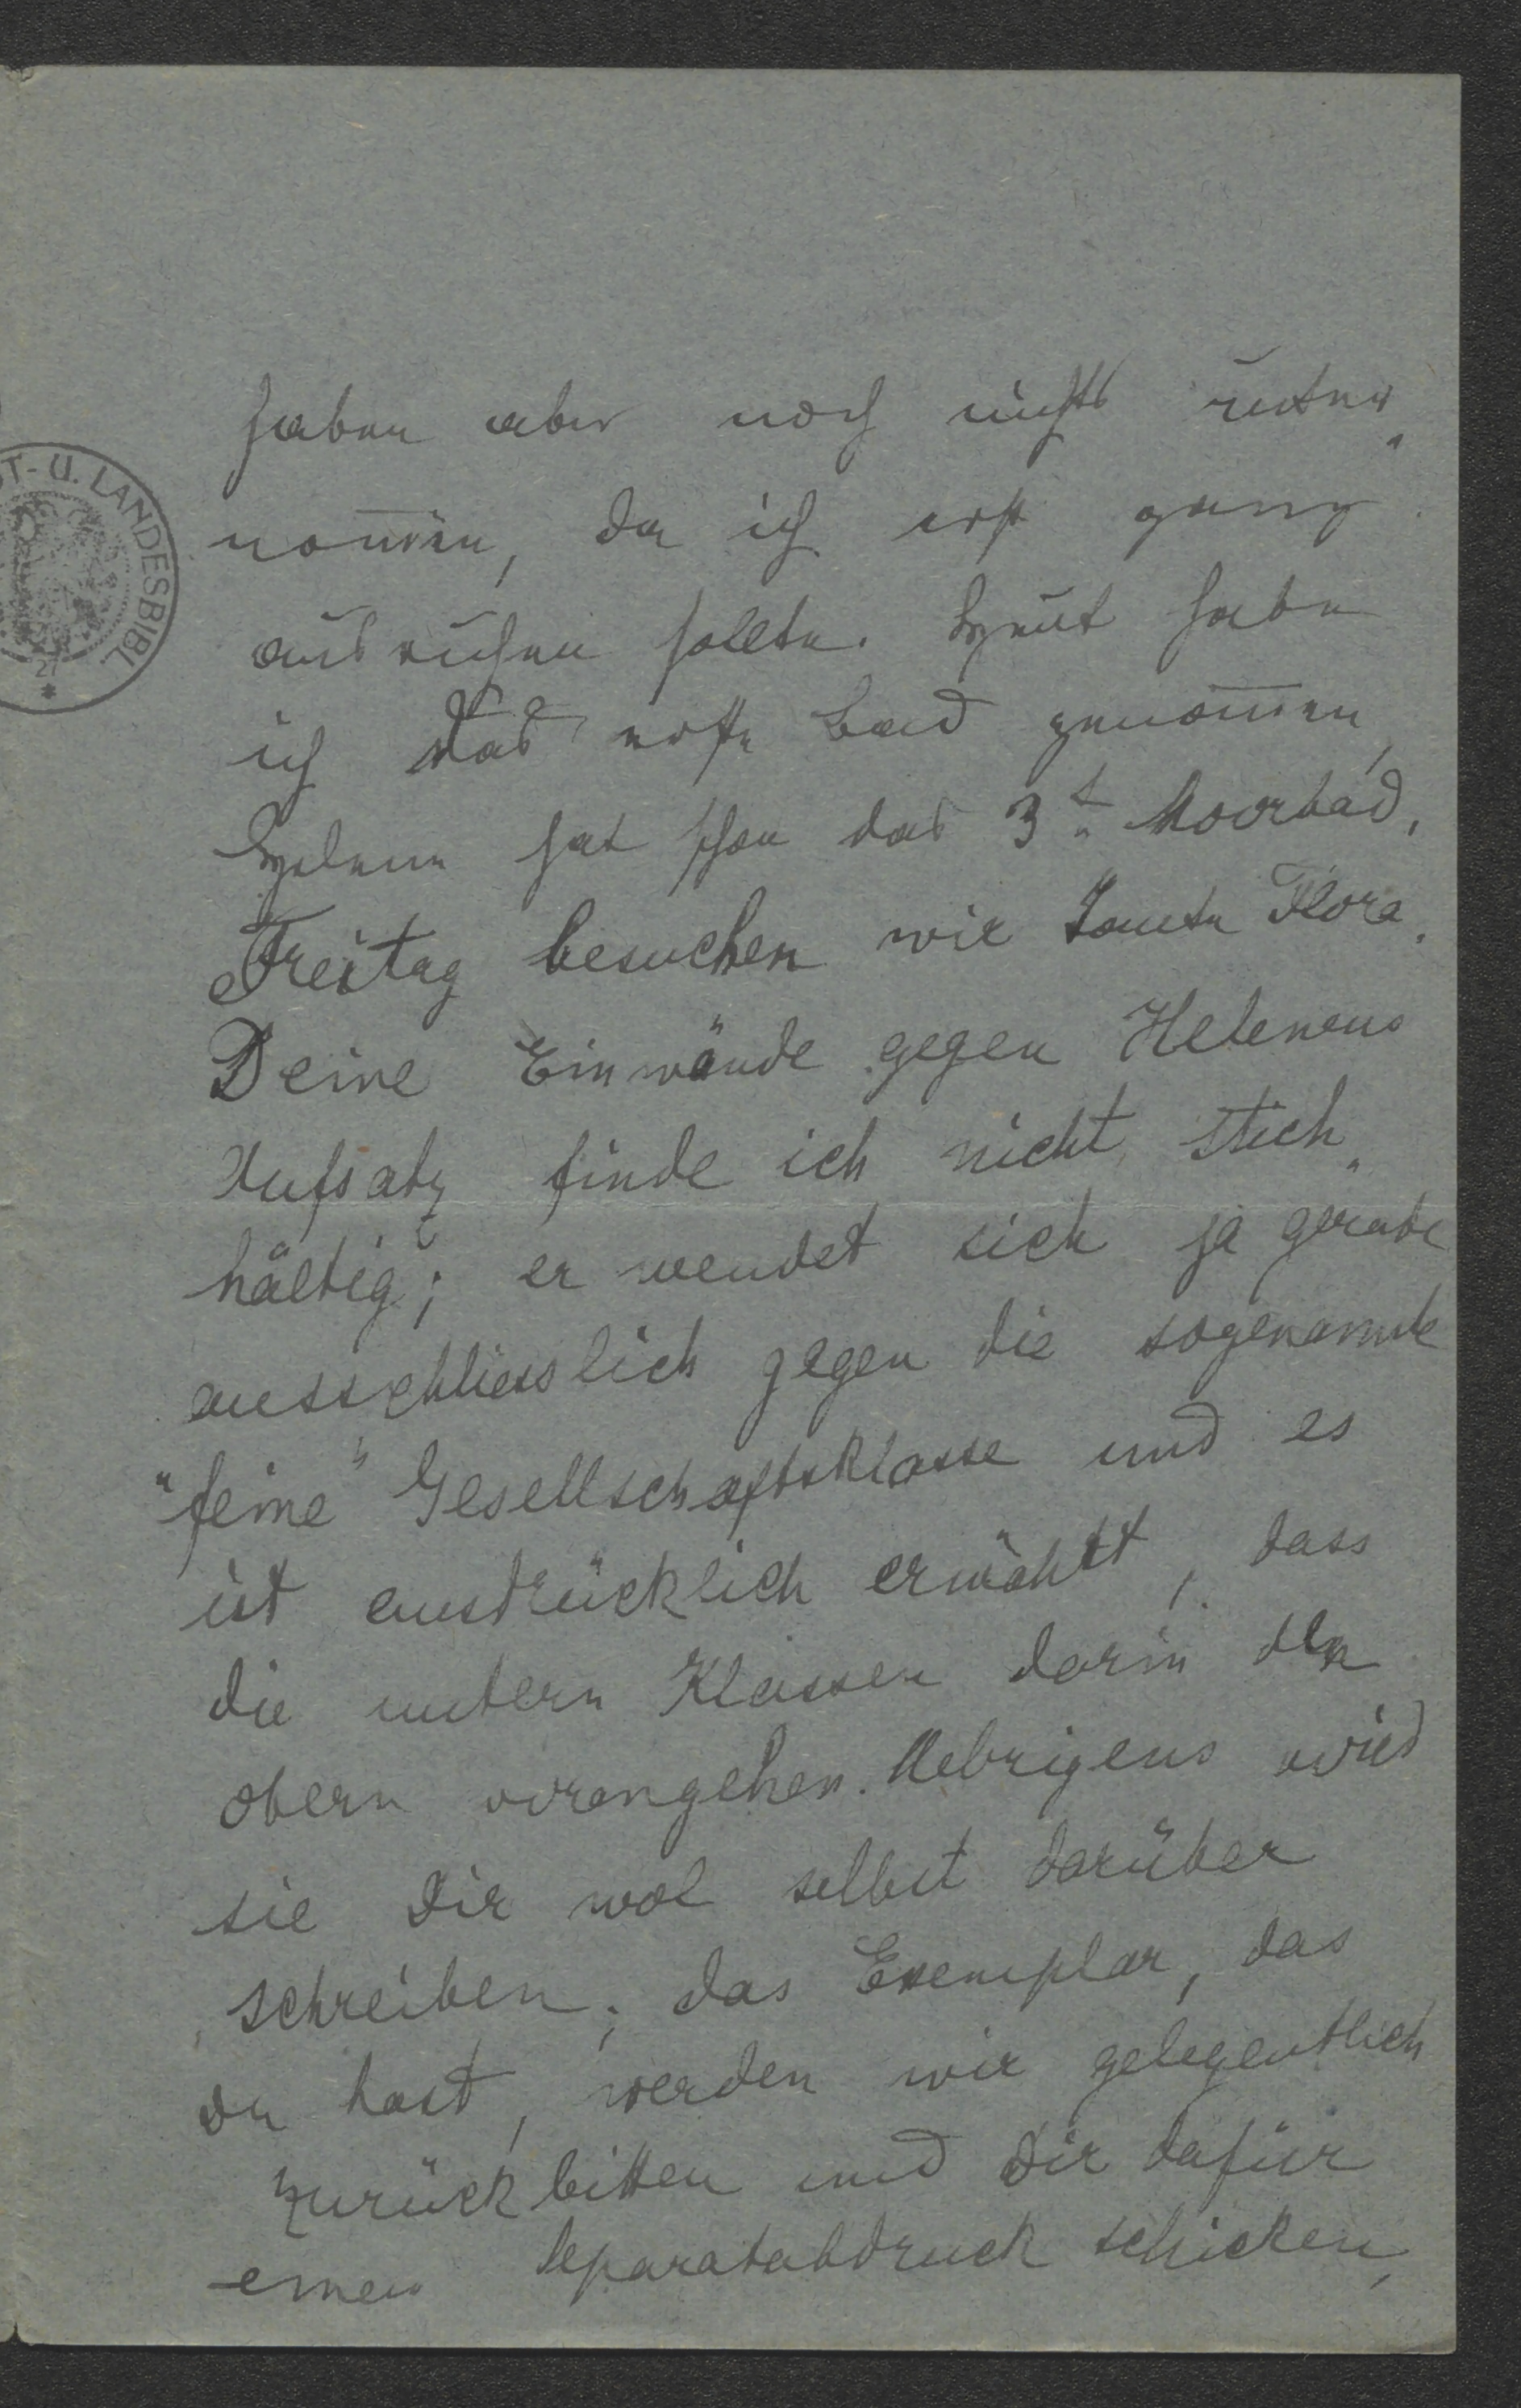 haben aber noch nichts unter„
nom̅en, da ich erst ganz
ausruhen sollte. Heut habe
ich das erste Bad genom̅en,
Helene hat schon das 3te Moorbad.
Freitag besuchen wir Tante Flora.
Deine Einwände gegen Helenens
Aufsatz finde ich nicht stich„
hältig; er wendet sich ja gerade
ausschliesslich gegen die sogenannte
"feine" Gesellschaftsklasse und es
ist ausdrücklich erwähnt, dass
die untern Klassen darin den
obern vorangehen. Uebrigens wird
sie Dir wol selbst darüber
schreiben; das Exemplar, das
du hast, werden wir gelegentlich
zurück bitten und Dir dafür
einen Separatabdruck schicken,
T- U. LANDESBIBL.